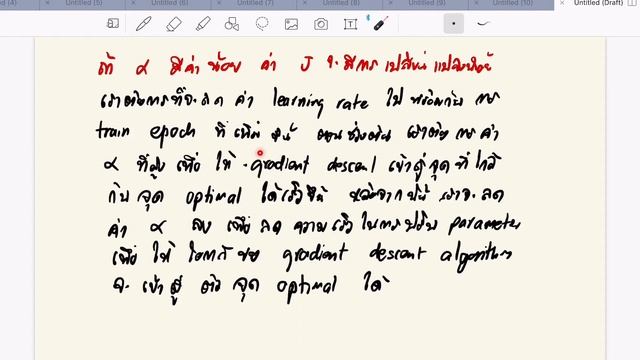 (4)
Untitled (5)
Untitled (6)
Untitled (7)
Untitled (8)
Untitled (9)
Untitled (10)
Untitled (Draft)
ถ้า α มีค่าน้อย ค่า J จะมีการเปลี่ยนแปลงน้อย
เราต้องการที่จะลด ค่า learning rate ไปพร้อมกับ การ
train epoch ที่เพิ่มขึ้น ตอนช่วงต้น เราต้องการค่า
α ที่สูง เพื่อ ให้ gradient descent เข้าสู่จุด ที่ใกล้
กับ จุด optimal ได้เร็วขึ้น หลังจากนั้น เราจะ ลด
ค่า α ลง เพื่อ ลด ความเร็ว ในการปรับ parameter
เพื่อ ให้ โอกาส ของ gradient descent algorithm
จะ เข้า สู่ ตัว จุด optimal ได้